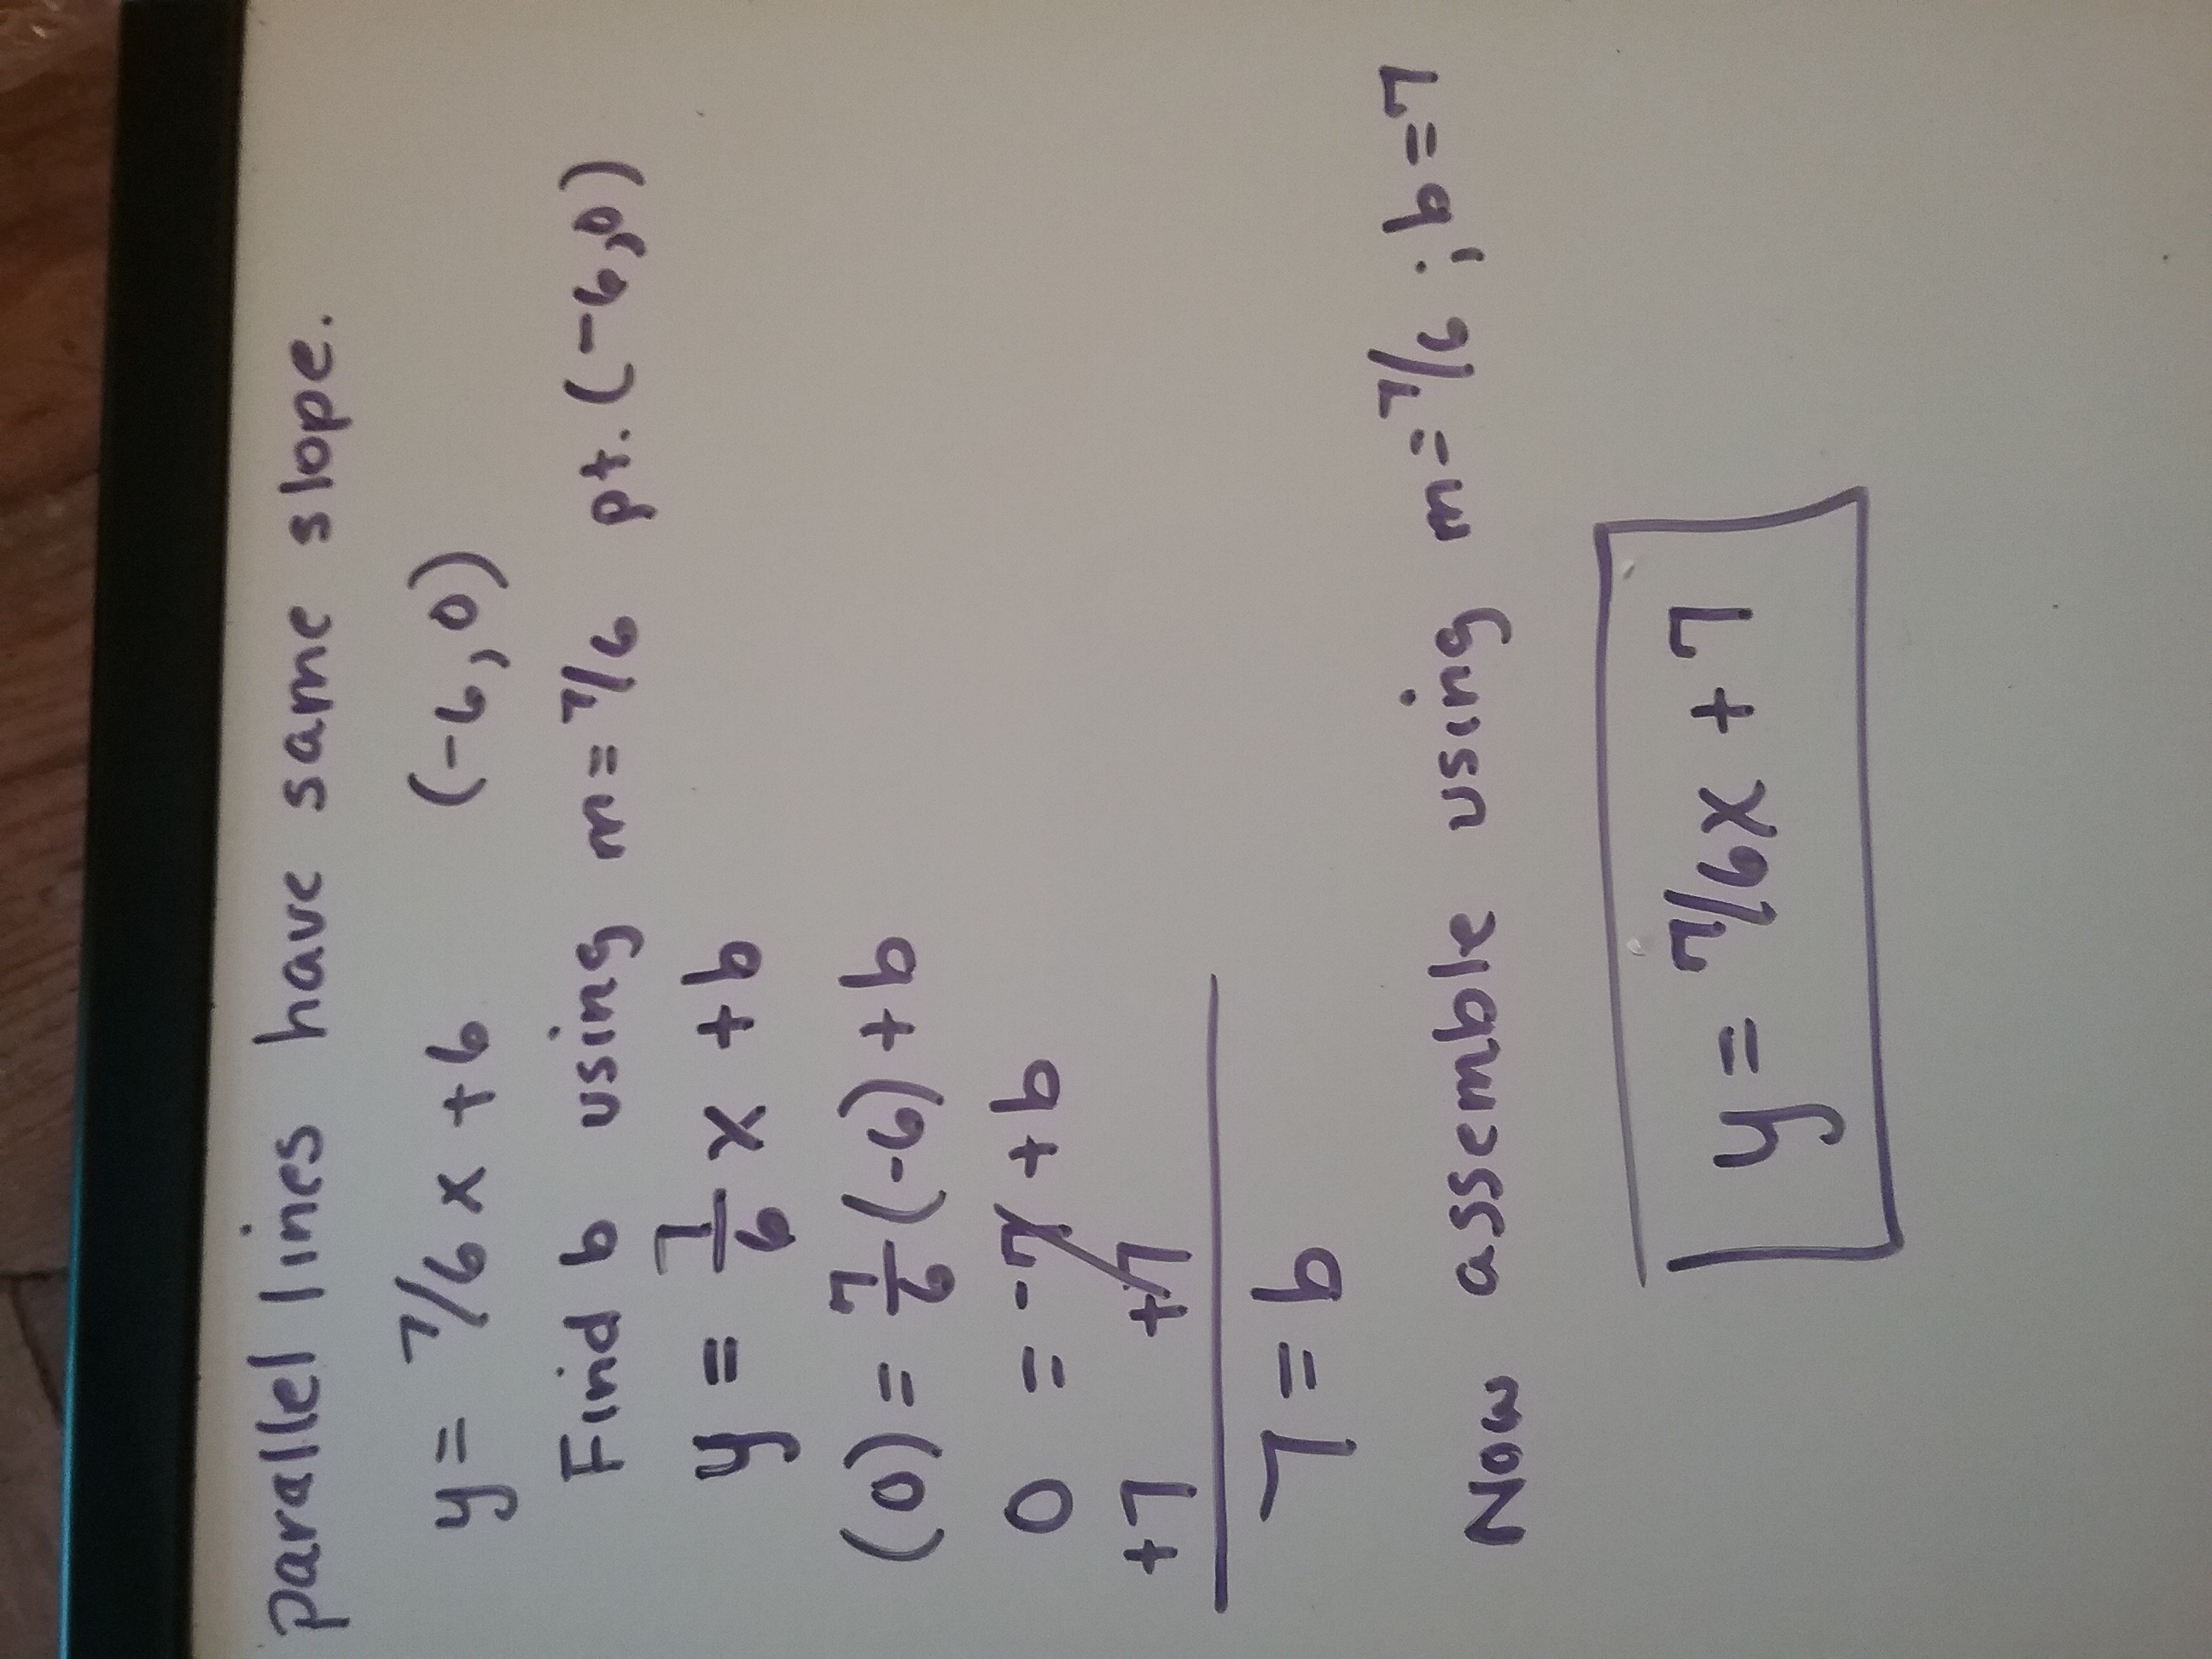 parallel lines have same slope.
y = 7/6 x + 6 (-6,0)
Find b using m = 7/6 pt. (-6,0)
y = 7/6 x + b
(0) = 7/6 (-6) + b
0 = -7 + b
+7 +7
7 = b
Now assemble using m = 7/6 ; b = 7
y = 7/6x + 7